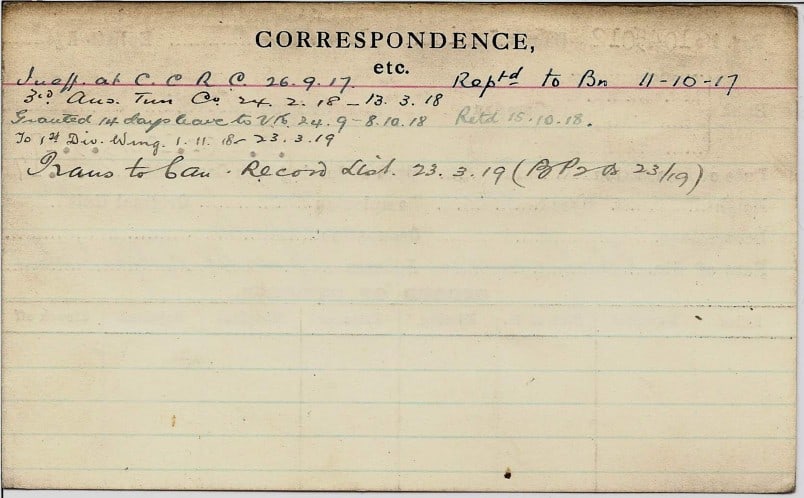 CORRESPONDENCE,
etc.
at C. C. R. C. 26.9.17. Reptd to Bn 11-10-17
3rd Aus. Tun Co. 24. 2. 18 - 13. 3. 18
Granted 14 days leave to U.K. 24.9 - 8.10.18 Retd 15.10.18.
To 1st Div. Wing. 1. 11. 18 - 23.3.19
Trans to Can. Record List. 23. 3. 19 ( 23/19)